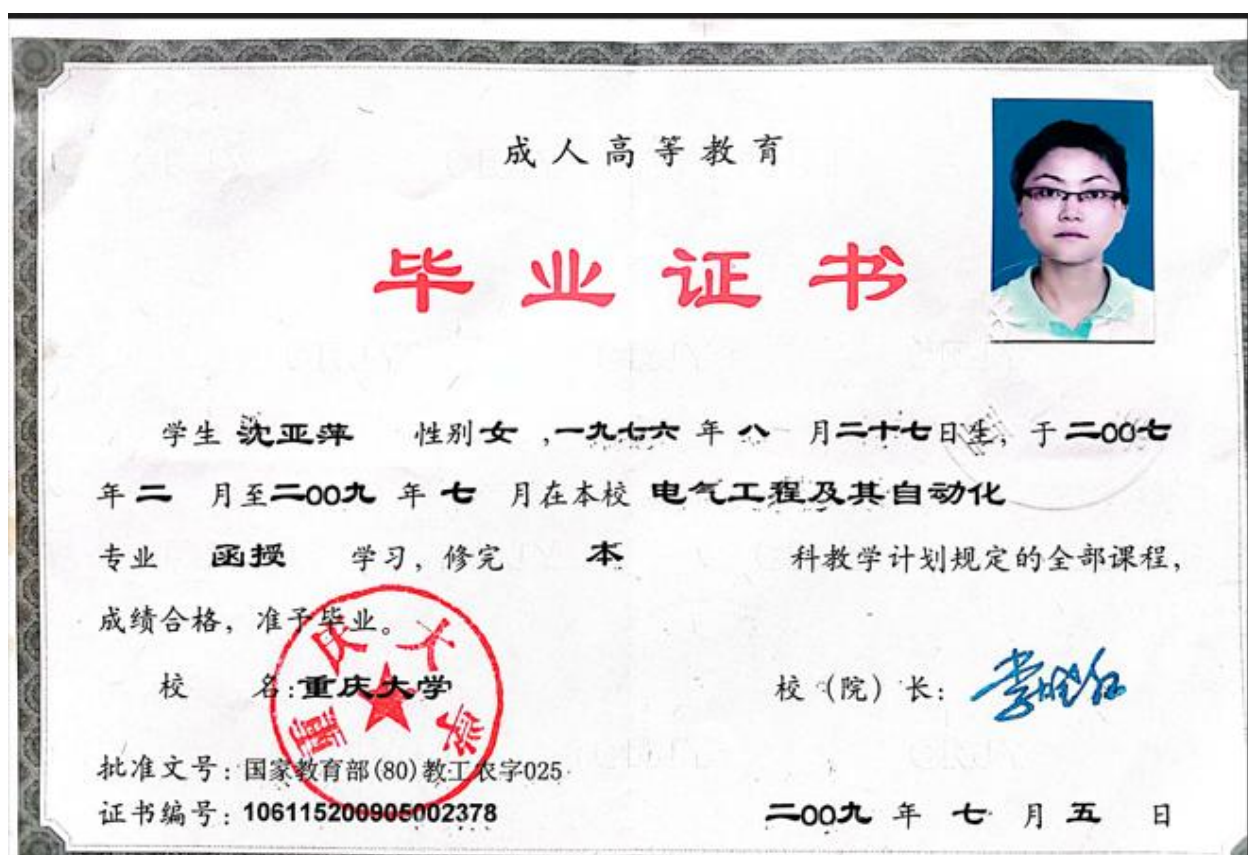 成人高等教育
毕业证书
学生 沈亚萍 性别 女 ,一九七六 年 八 月 二十七 日生, 于 二00七
年 二 月至 二00九 年 七 月在本校 电气工程及其自动化
专业 函授 学习, 修完 本 科教学计划规定的全部课程,
成绩合格, 准予毕业。
校 名:重庆大学 校 (院) 长:
重庆大学
批准文号: 国家教育部(80)教工农字025
证书编号: 106115200905002378 二00九 年 七 月 五 日